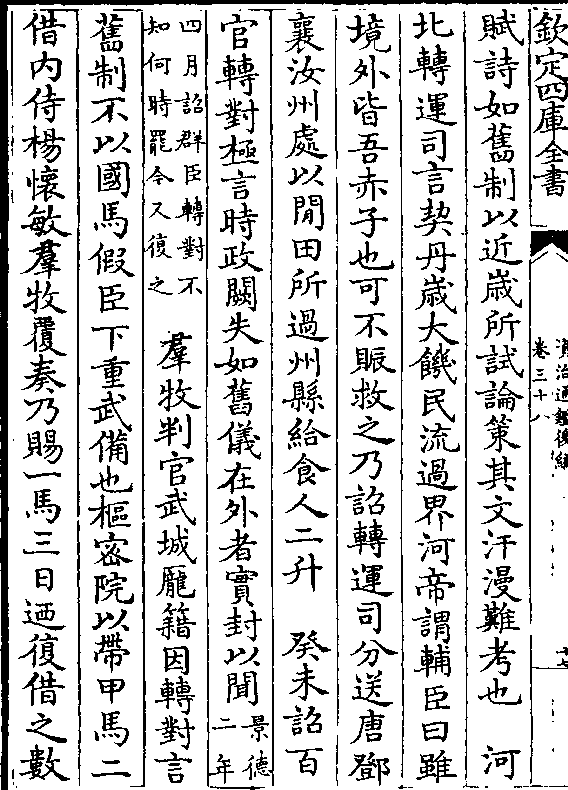 欽定四庫全書
資治通鑑後編
卷三十八
賦詩如舊制以近歲所試論策其文汗漫難考也　河
北轉運司言契丹歲大饑民流過界河帝謂輔臣曰雖
境外皆吾赤子也可不賑救之乃詔轉運司分送唐鄧
襄汝州處以閒田所過州縣給食人二升　癸未詔百
官轉對極言時政闕失如舊儀在外者實封以聞景德
二年
四月詔群臣轉對不
知何時罷今又復之　羣牧判官武城龐籍因轉對言
舊制不以國馬假臣下重武備也樞密院以帶甲馬二
借内侍楊懷敏羣牧覆奏乃賜一馬三日迺復借之數